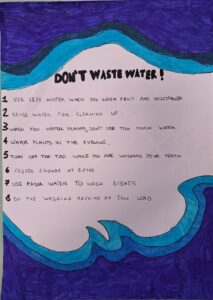 DON'T WASTE WATER!
1 USE LESS WATER WHEN YOU WASH FRUIT AND VEGETABLES
2 REUSE WATER FOR CLEANING UP
3 WHEN YOU WATER PLANTS, DON'T USE TOO MUCH WATER
4 WATER PLANTS IN THE EVENING,
5 TURN OFF THE TAP WHILE YOU ARE WASHING YOUR TEETH
6 PREFER SHOWER AT BATHS
7 USE PASTA WATER TO WASH DISHES
8 DO THE WASHING MACHINE AT FULL LOAD